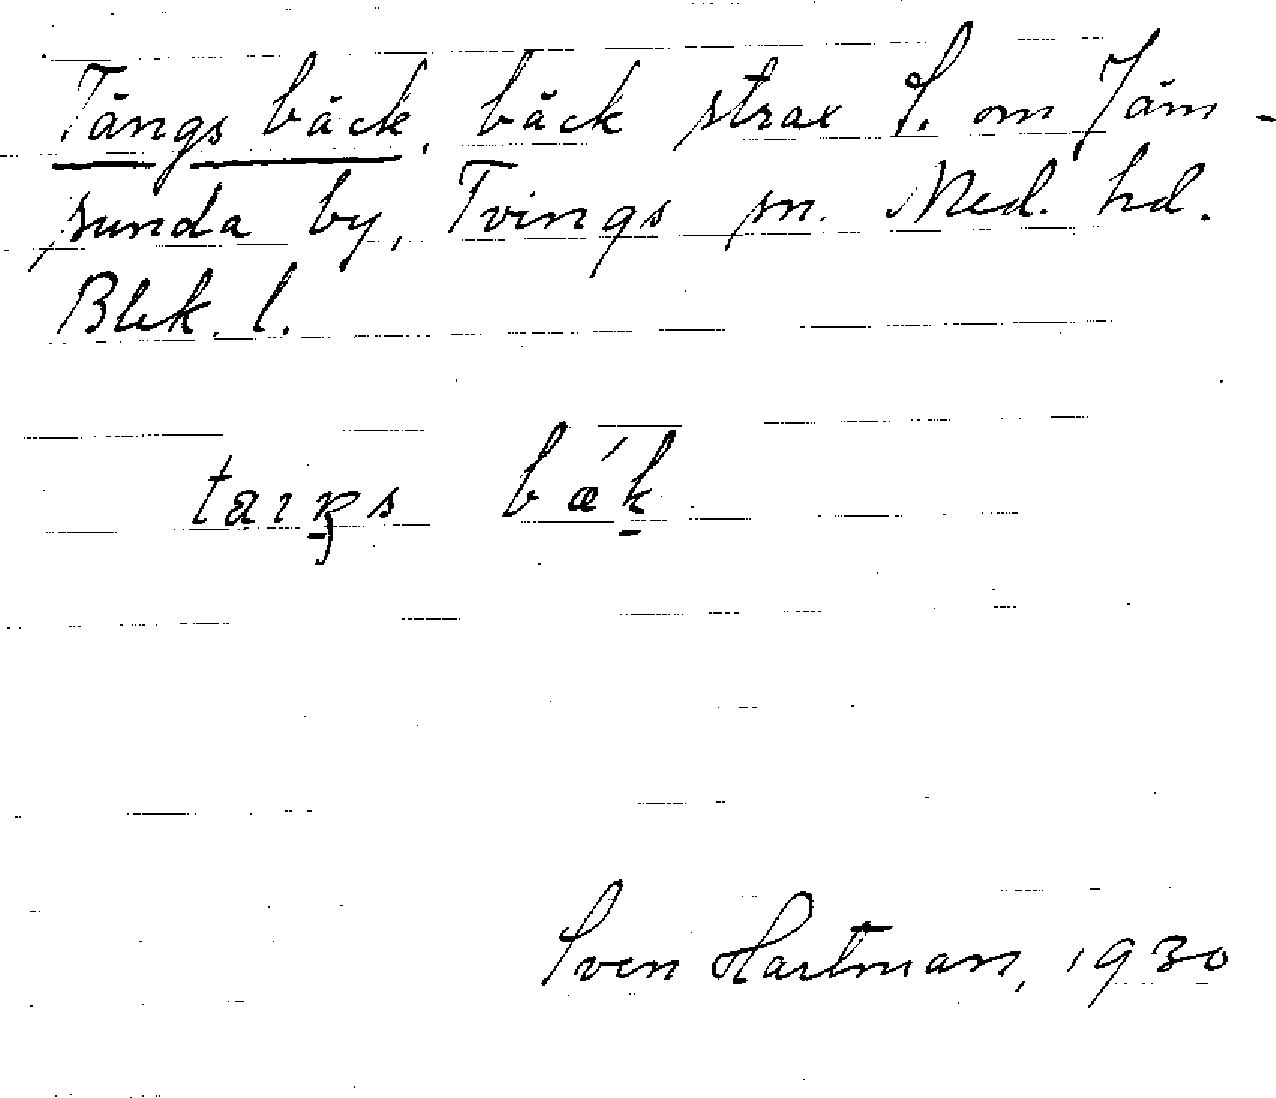 Tängs bäck, bäck strax S. om Jäm-
sunda by, Tvings sn. Med. hd.
Blek. l.
bǽk
Sven Hartman, 1930